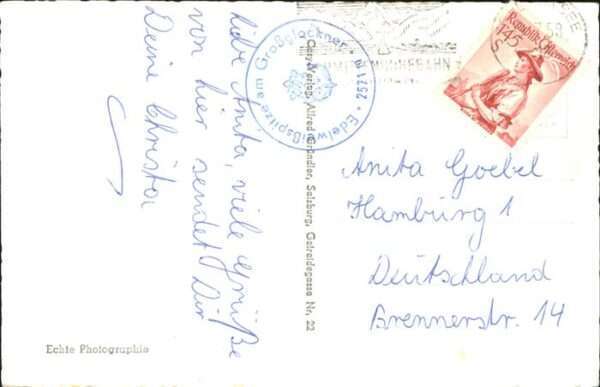 liebe Anita, viele Grüße
von hier sendet Dir
Deine Christa
Edelweißspitze am Großglockner
Cosy-Verlag, Alfred Gründler, Salzburg, Getreidegasse Nr. 22
Republik Österreich
1.45
S
Anita Goebel
Hamburg 1
Deutschland
Brennerstr. 14
Echte Photographie